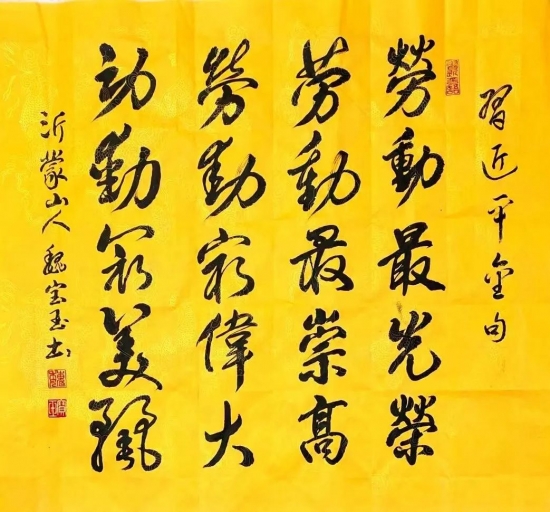 習近平金句
勞動最光榮
劳動最崇高
勞動最偉大
劳動最美麗
沂蒙山人魏宝玉书